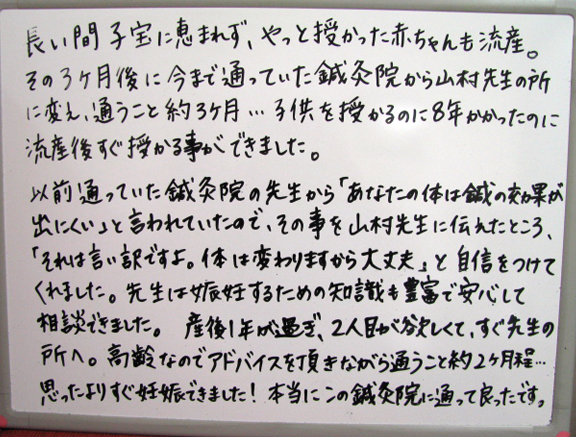 長い間子宝に恵まれず、やっと授かった赤ちゃんも流産。
その3ヶ月後に今まで通っていた鍼灸院から山村先生の所
に変え、通うこと約3ヶ月…子供を授かるのに8年かかったのに
流産後すぐ授かる事ができました。
以前通っていた鍼灸院の先生から「あなたの体は鍼の効果が
出にくい」と言われていたので、その事を山村先生に伝えたところ、
「それは言い訳ですよ。体は変わりますから大丈夫」と自信をつけて
くれました。先生は妊娠するための知識も豊富で安心して
相談できました。 産後1年が過ぎ、2人目が欲しくて、すぐ先生の
所へ。高齢なのでアドバイスを頂きながら通うこと約2ヶ月程…
思ったよりすぐ妊娠できました！本当にこの鍼灸院に通って良ったです。